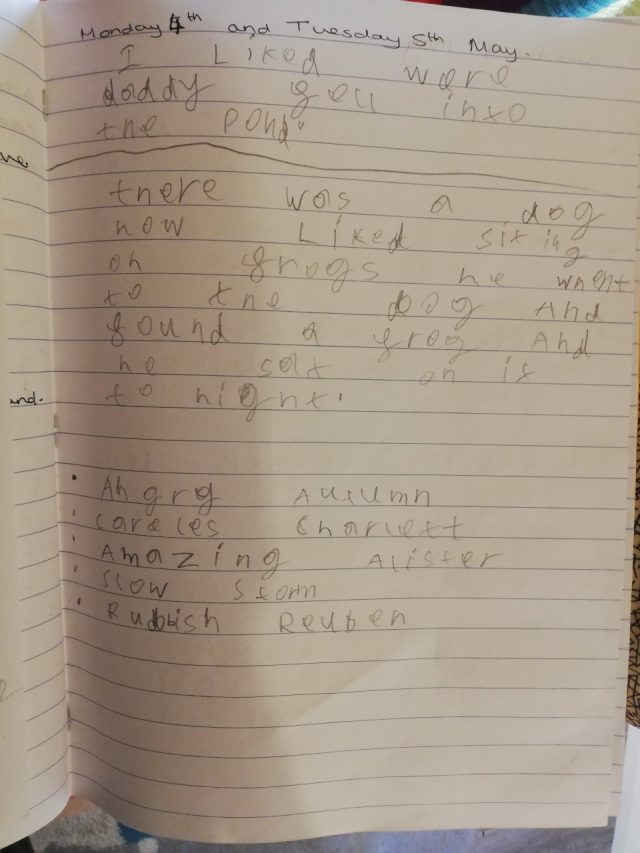 Monday 4th and Tuesday 5th May.
I Liked were
daddy fell into
the pond.
there was a dog
how Liked siting
on frogs he whent
to the bog And
found a frog And
he sat on it
to night.
Angrg Autumn
careles Charlext
Amazing Alister
Slow Storm
Rubbish Reuben
und.